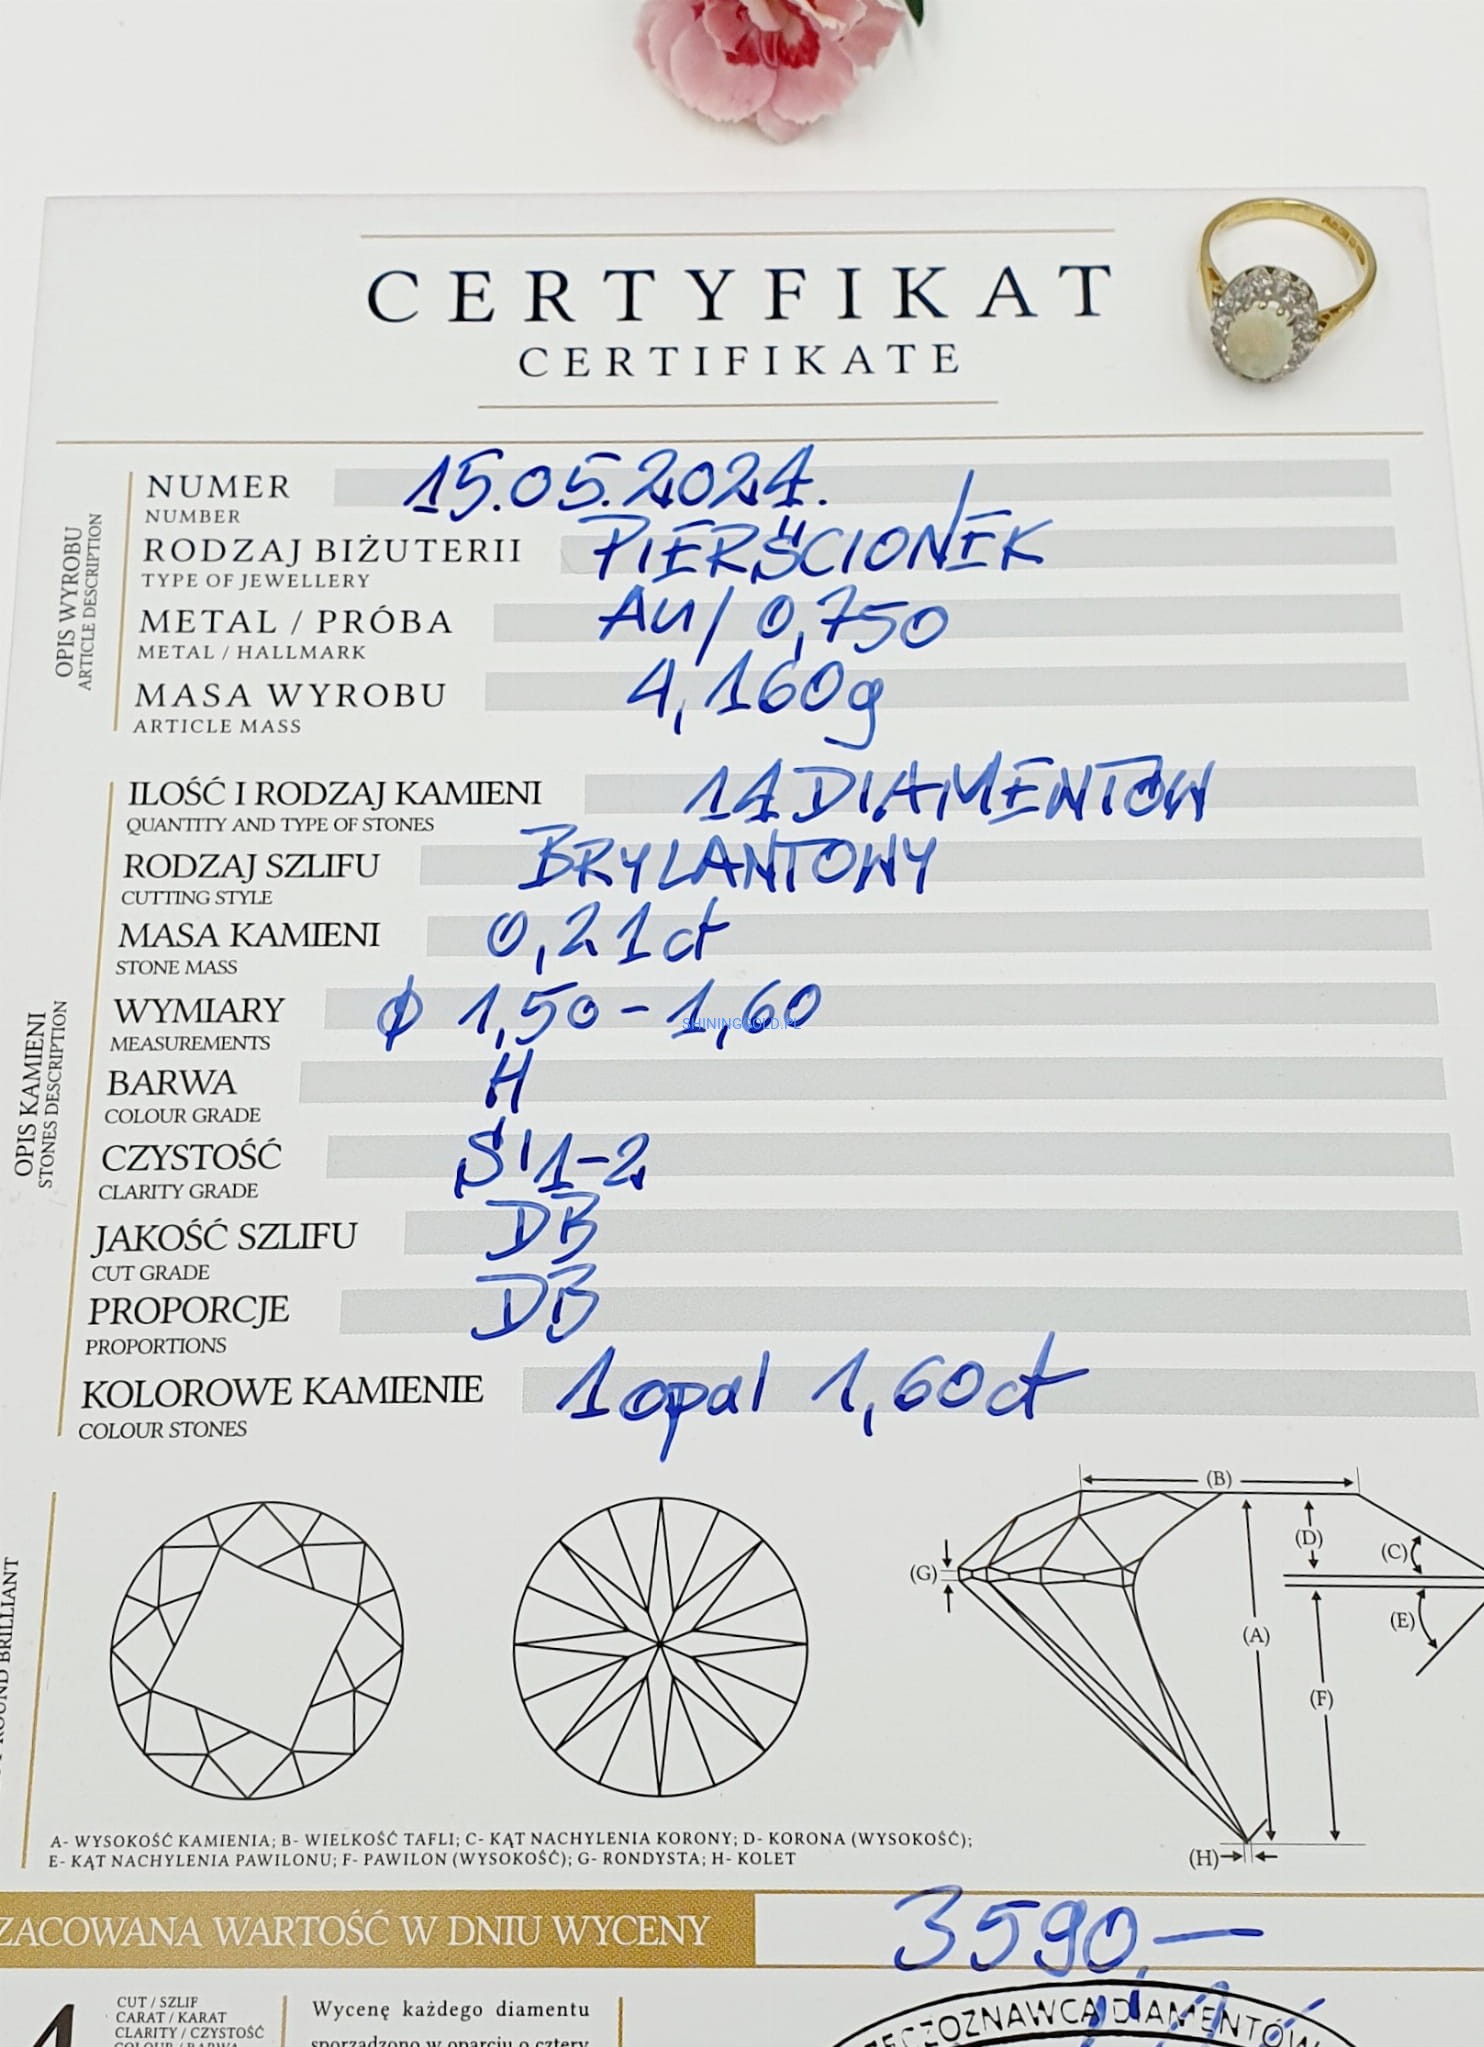 CERTYFIKAT
CERTIFIKATE
OPIS WYROBU
ARTICLE DESCRIPTION
NUMER 15.05.2024.
NUMBER
RODZAJ BIŻUTERII PIERŚCIONEK
TYPE OF JEWELLERY
METAL / PRÓBA Au/0,750
METAL / HALLMARK
MASA WYROBU 4,160g
ARTICLE MASS
OPIS KAMIENI
STONES DESCRIPTION
ILOŚĆ I RODZAJ KAMIENI 14 DIAMENTÓW
QUANTITY AND TYPE OF STONES
RODZAJ SZLIFU BRYLANTOWY
CUTTING STYLE
MASA KAMIENI 0,21ct
STONE MASS
WYMIARY ϕ 1,50-1,60
SHININGGOLD.PL
MEASUREMENTS
BARWA H
COLOUR GRADE
CZYSTOŚĆ SI1-2
CLARITY GRADE
JAKOŚĆ SZLIFU DB
CUT GRADE
PROPORCJE DB
PROPORTIONS
KOLOROWE KAMIENIE 1 opal 1,60ct
COLOUR STONES
ROUND BRILLIANT
(B)
(D)
(C)
(G)
(E)
(A)
(F)
(H)
A- WYSOKOŚĆ KAMIENIA; B- WIELKOŚĆ TAFLI; C- KĄT NACHYLENIA KORONY; D- KORONA (WYSOKOŚĆ);
E- KĄT NACHYLENIA PAWILONU; F- PAWILON (WYSOKOŚĆ); G- RONDYSTA; H- KOLET
ZACOWANA WARTOŚĆ W DNIU WYCENY 3590,—
4
CUT / SZLIF
CARAT / KARAT
CLARITY / CZYSTOŚĆ
COLOUR / BARWA
Wycenę każdego diamentu
sporządzono w oparciu o cztery
RZECZOZNAWCA DIAMENTÓW